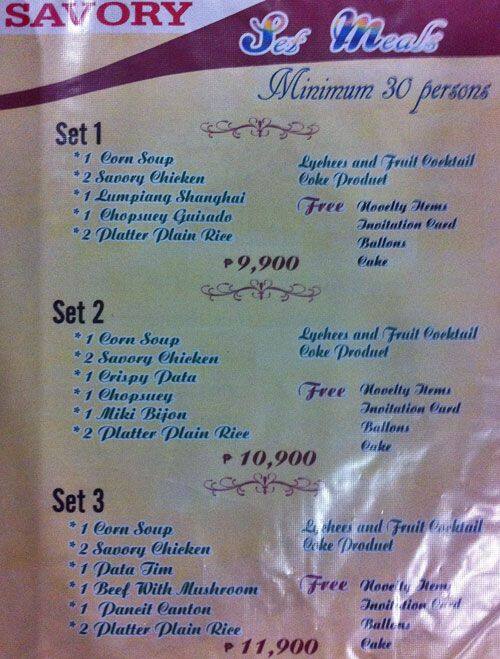 SAVORY
Set Meals
Minimum 30 persons
Set 1
* 1 Corn Soup
* 2 Savory Chicken
* 1 Lumpiang Shanghai
* 1 Chopsuey Guisado
* 2 Platter Plain Rice
Lychees and Fruit Cocktail
Coke Product
Free Novelty Items
Invitation Card
Ballons
Cake
₱ 9,900
Set 2
* 1 Corn Soup
* 2 Savory Chicken
* 1 Crispy Pata
* 1 Chopsuey
* 1 Miki Bijon
* 2 Platter Plain Rice
Lychees and Fruit Cocktail
Coke Product
Free Novelty Items
Invitation Card
Ballons
Cake
₱ 10,900
Set 3
* 1 Corn Soup
* 2 Savory Chicken
* 1 Pata Tim
* 1 Beef With Mushroom
* 1 Pancit Canton
* 2 Platter Plain Rice
Lychees and Fruit Cocktail
Coke Product
Free Novelty Items
Invitation Card
Ballons
Cake
₱ 11,900